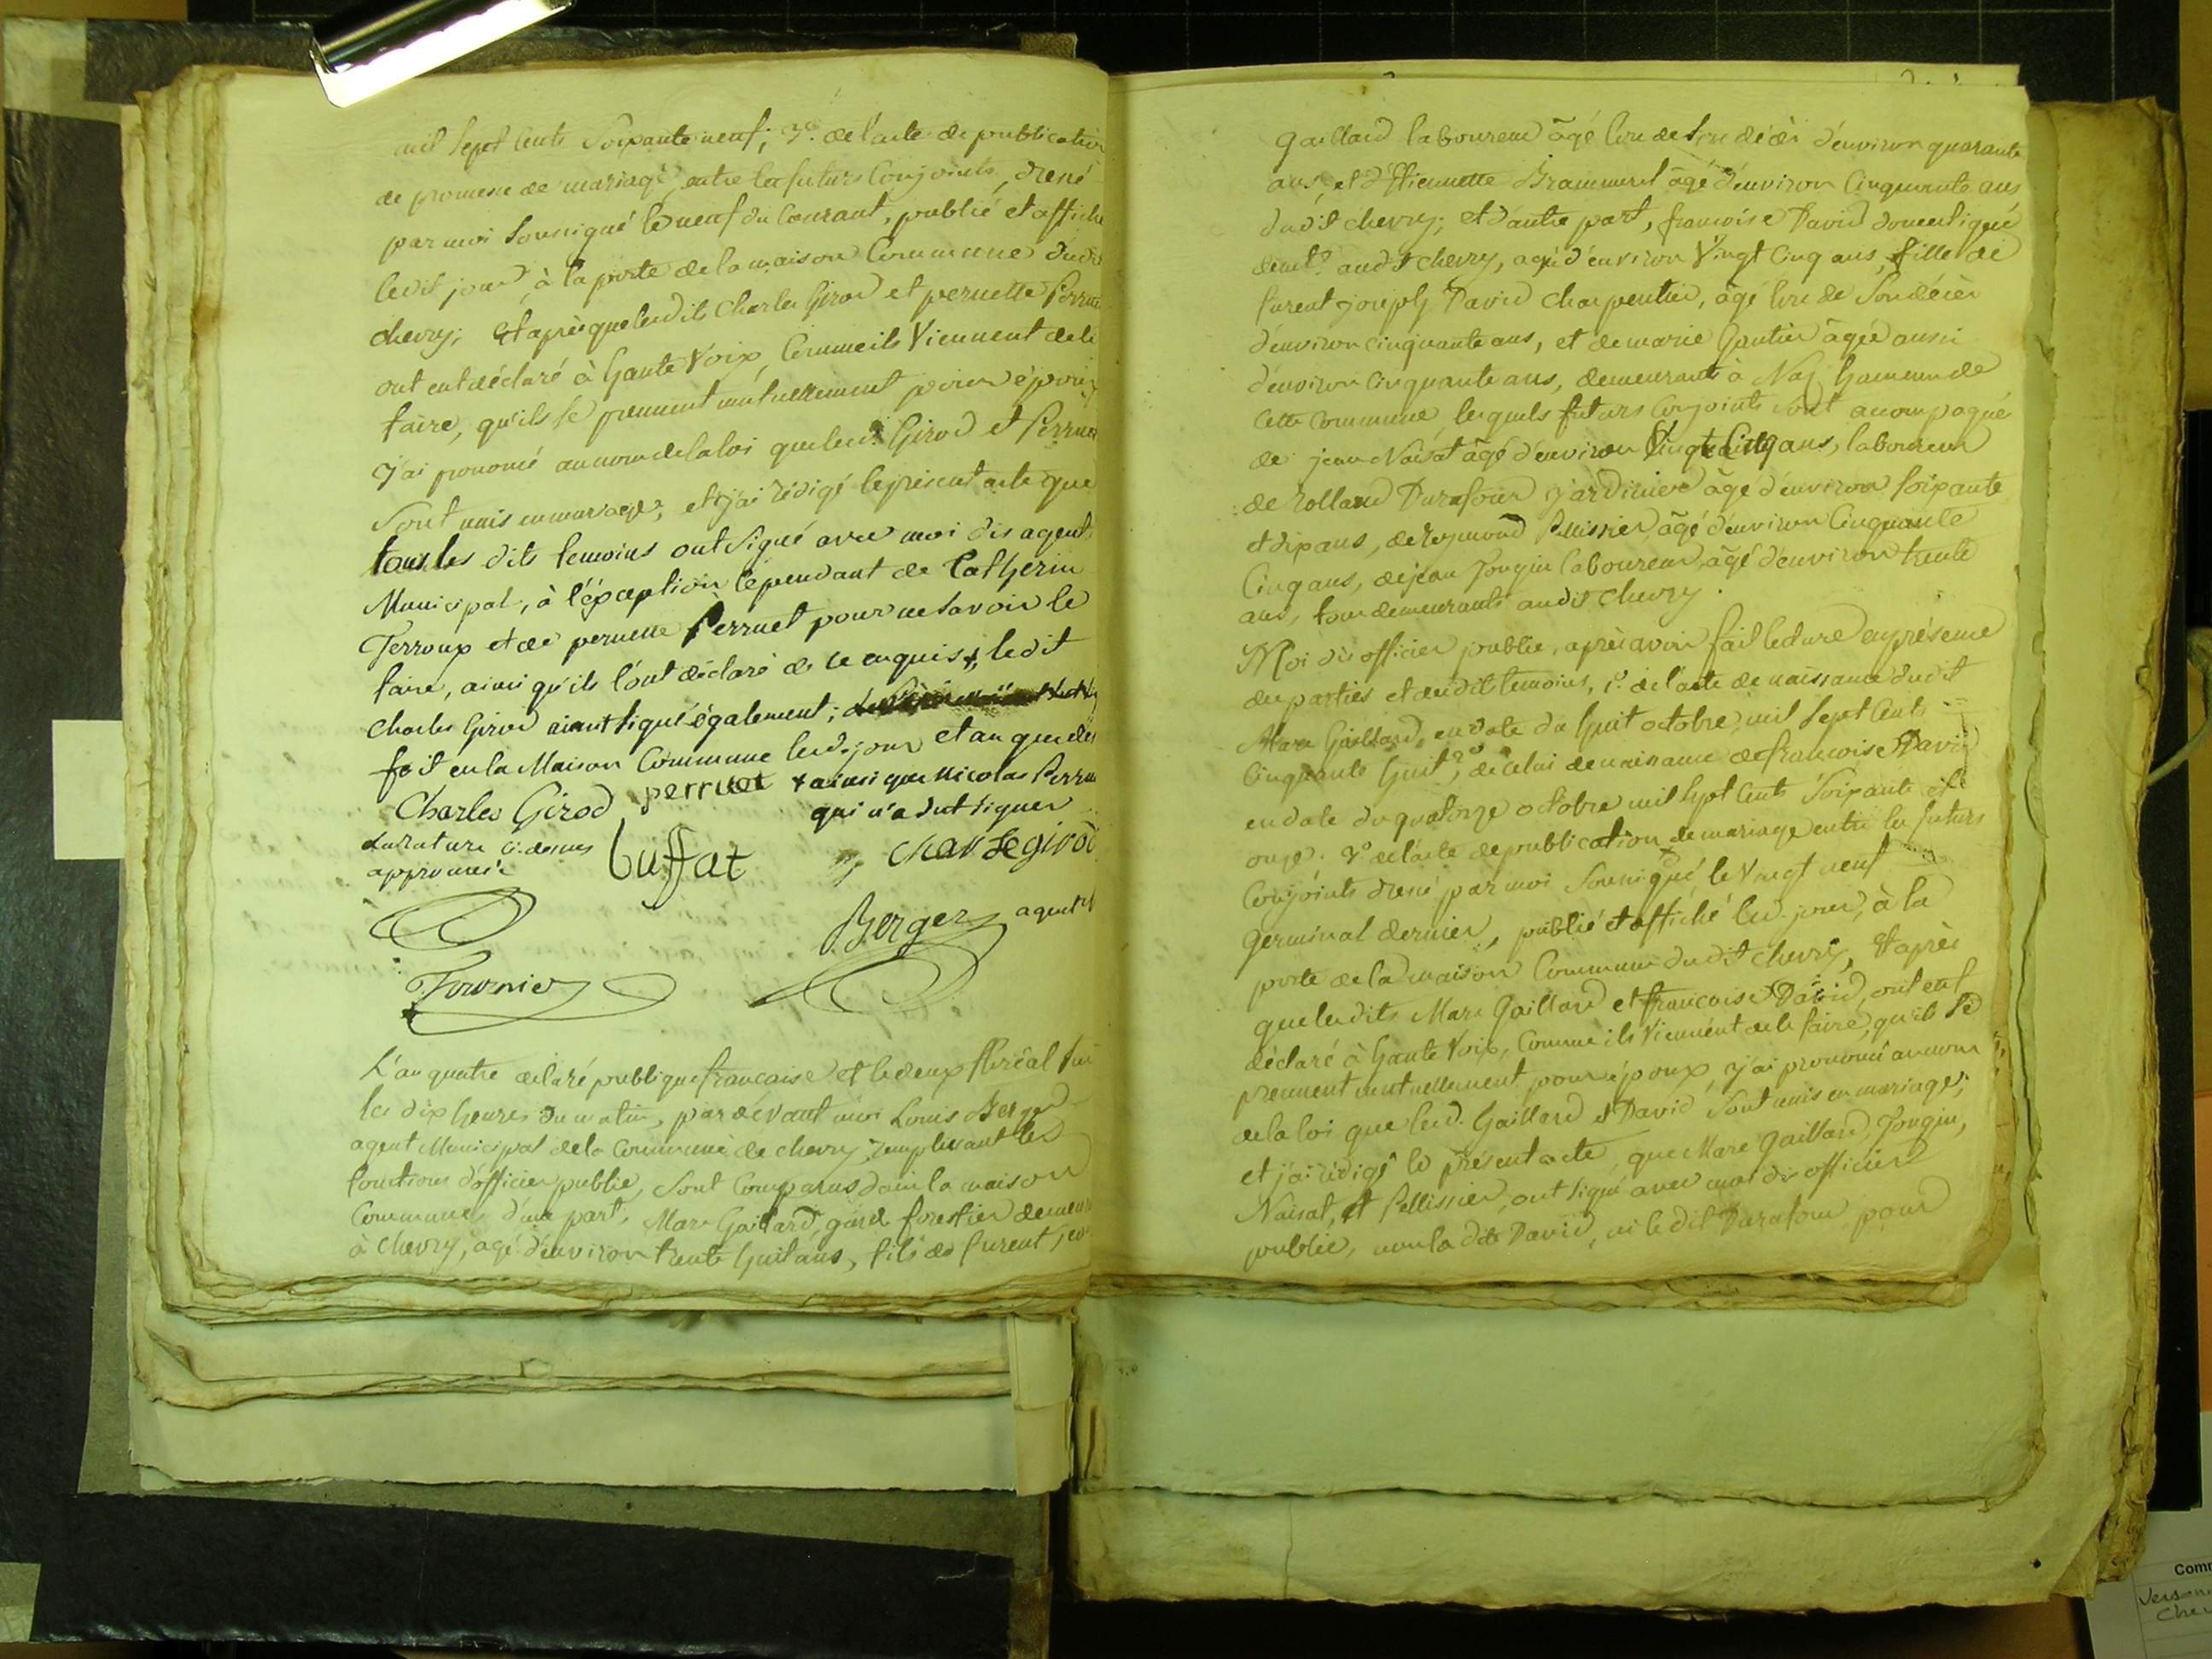 mil sept Cents Soixante neuf; 3º. de l'acte de publication
de promesse de mariage entre les futurs Conjoints, dressé
par moi soussigné le neuf du Courant, publié et affiché
ledit jour à la porte de la maison Commune dudit
chevry; Et après que lesdits Charles Girod et pernette Perru
ont eut déclaré à haute Voix, Comme ils Viennent de le
faire, qu'ils se prennent mutuellement pour époux,
j'ai prononcé au nom de la loi que lesd. Girod et Perruet
Sont unis en mariage; et j'ai rédigé le présent acte que
tous les dits temoins ont signé avec moi dis agent
Municipal, à l'éxception Cependant de Catherin
Terroux et de pernette Perruet pour ne savoir le
faire, ainsi qu'ils l'ont déclaré de ce enquis +, ledit
Charles Girod aiant signé également;
fait en la Maison Commune led. jour et an que des
Charles Girod perruet + ainsi que Nicolas Perru
qui n'a sut signer
La rature ci dessus
approuvée
buffat
Char Le girod
Berger agent
Fournier
L'an quatre de la république française et le deux floréal sur
les dix heures du matin, par devant moi Louis Berger
agent Municipal de la Commune de chevry, remplissant les
fonctions d'officier public, Sont Comparus dans la maison
Commune, d'une part, Marc Gaillard, garde forestier demeur
à chevry, agé d'environ trente huit ans, fils de furent
gaillard laboureur âgé lors de son décès d'environ quarante
ans, et d'Etiennette âgé d'environ Cinquante ans
dudit chevry; et d'autre part, françoise David domestique
demt. audit chevry, agée d'environ Vingt Cinq ans, fille de
furent joseph David charpentier, âgé lors de Son décès
d'environ cinquante ans, et de marie Gautier âgée aussi
d'environ Cinquante ans, demeurants à Naz hameau de
Cette Commune, lesquels futurs Conjoints sont accompagné
de jean Naisat âgé d'environ Vingt Cinq ans, laboureur
de rolland Durafour jardinier âgé d'environ soixante
et dix ans, de reymond Pellissier âgé d'environ Cinquante
Cinq ans, de jean Jougin laboureur, âgé d'environ trente
ans, tous demeurants audit chevry.
Moi dis officier public, après avoir fait lecture en présence
des parties et desdits temoins, 1º. de l'acte de naissance dudit
Marc Gaillard, en date du huit octobre mil sept Cents
Cinquante huit, 2º de celui de naissance de françoise David
en date du quatorze octobre mil sept Cents Soixante et
onze. 3º de l'acte de publication de mariage entre les futurs
Conjoints dressé par moi Soussigné, le Vingt neuf
germinal dernier, publié et affiché led. jour, à la
porte de la maison Commune dudit chevry, Et après
que lesdits Marc Gaillard et françoise David, ont eut
déclaré à haute Voix, Comme ils Viennent de le faire, qu'ils se
prennent mutuellement pour époux, j'ai prononcé au nom
de la loi que lesd. Gaillard et David Sont unis en mariage;
et j'ai rédigé le présent acte, que Marc Gaillard, Jougin,
Naisat, et Pellissier, ont signé avec moi dis officier
public, non la dite David, ni le dit Durafour pour
Comm
Cher